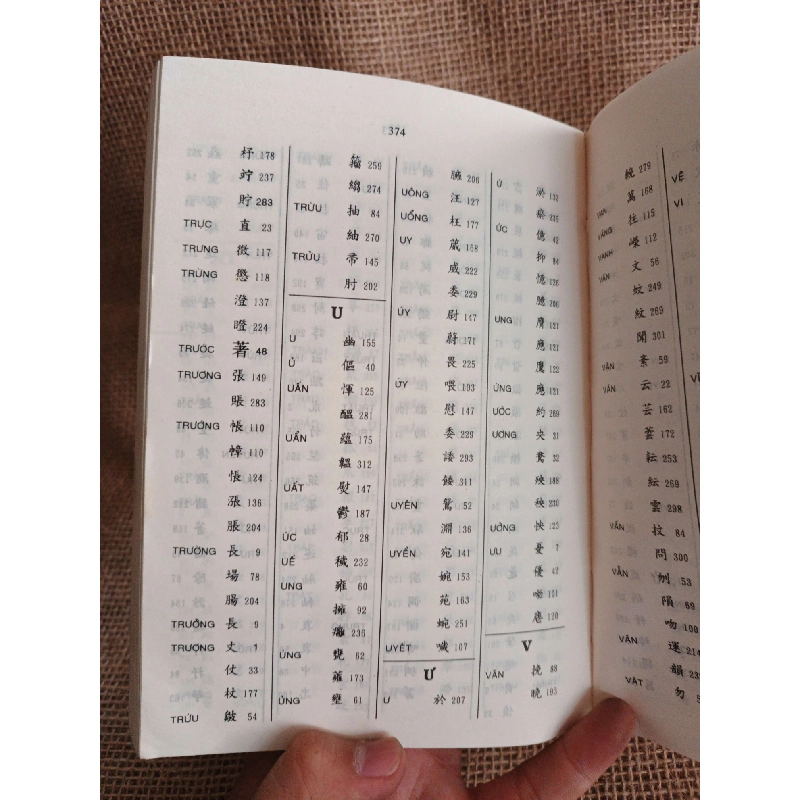 374
杼 178
竚 237
貯 283
TRỰC 直 23
TRƯNG 徵 117
TRỪNG 懲 118
澄 137
瞪 224
TRƯỚC 著 48
TRƯƠNG 張 149
賬 283
TRƯỚNG 帳 110
幛 110
悵 124
漲 136
脹 204
TRƯỜNG 長 9
場 78
腸 204
TRƯỞNG 長 9
TRƯỢNG 丈 1
仗 33
杖 177
TRỨU 皺 54
籀 259
縐 274
TRỪU 抽 84
紬 270
TRỬU 帚 145
肘 202
U
U 幽 155
Ủ 傴 40
UẨN 惲 125
醞 281
UẨN 蘊 175
韞 312
UẤT 熨 147
鬱 187
ÚC 郁 28
UẾ 穢 232
UNG 雍 60
擁 92
癰 236
ÚNG 甕 62
蕹 173
ỦNG 壅 61
臃 206
UÔNG 汪 127
UỔNG 枉 177
UY 葳 168
威 222
委 229
ÚY 尉 147
蔚 171
畏 225
ỦY 喂 193
慰 147
委 229
諉 293
餧 311
UYÊN 鴛 52
淵 136
UYỂN 宛 141
婉 153
苑 163
蜿 251
UYẾT 噦 107
Ư
Ư 於 207
Ứ 淤 132
瘀 235
ỨC 億 42
抑 84
憶 126
臆 206
ƯNG 膺 121
應 121
鷹 122
ỨNG 應 121
ƯỚC 約 269
ƯƠNG 央 31
鴦 32
殃 188
ƯỞNG 怏 123
ƯU 憂 7
優 42
V
VÃN 挽 88
晚 193
輓 279
VẠN 萬 168
VÃNG 往 115
VANH 嶸 112
VĂN 文 56
蚊 249
紋 269
聞 301
VẶN 紊 59
VÂN 云 22
芸 162
耘 253
紜 269
雲 298
VẤN 抆 84
問 300
VẪN 刎 53
隕
吻
VẬN 運 214
韻
VẬT 勿
VỆ
VI